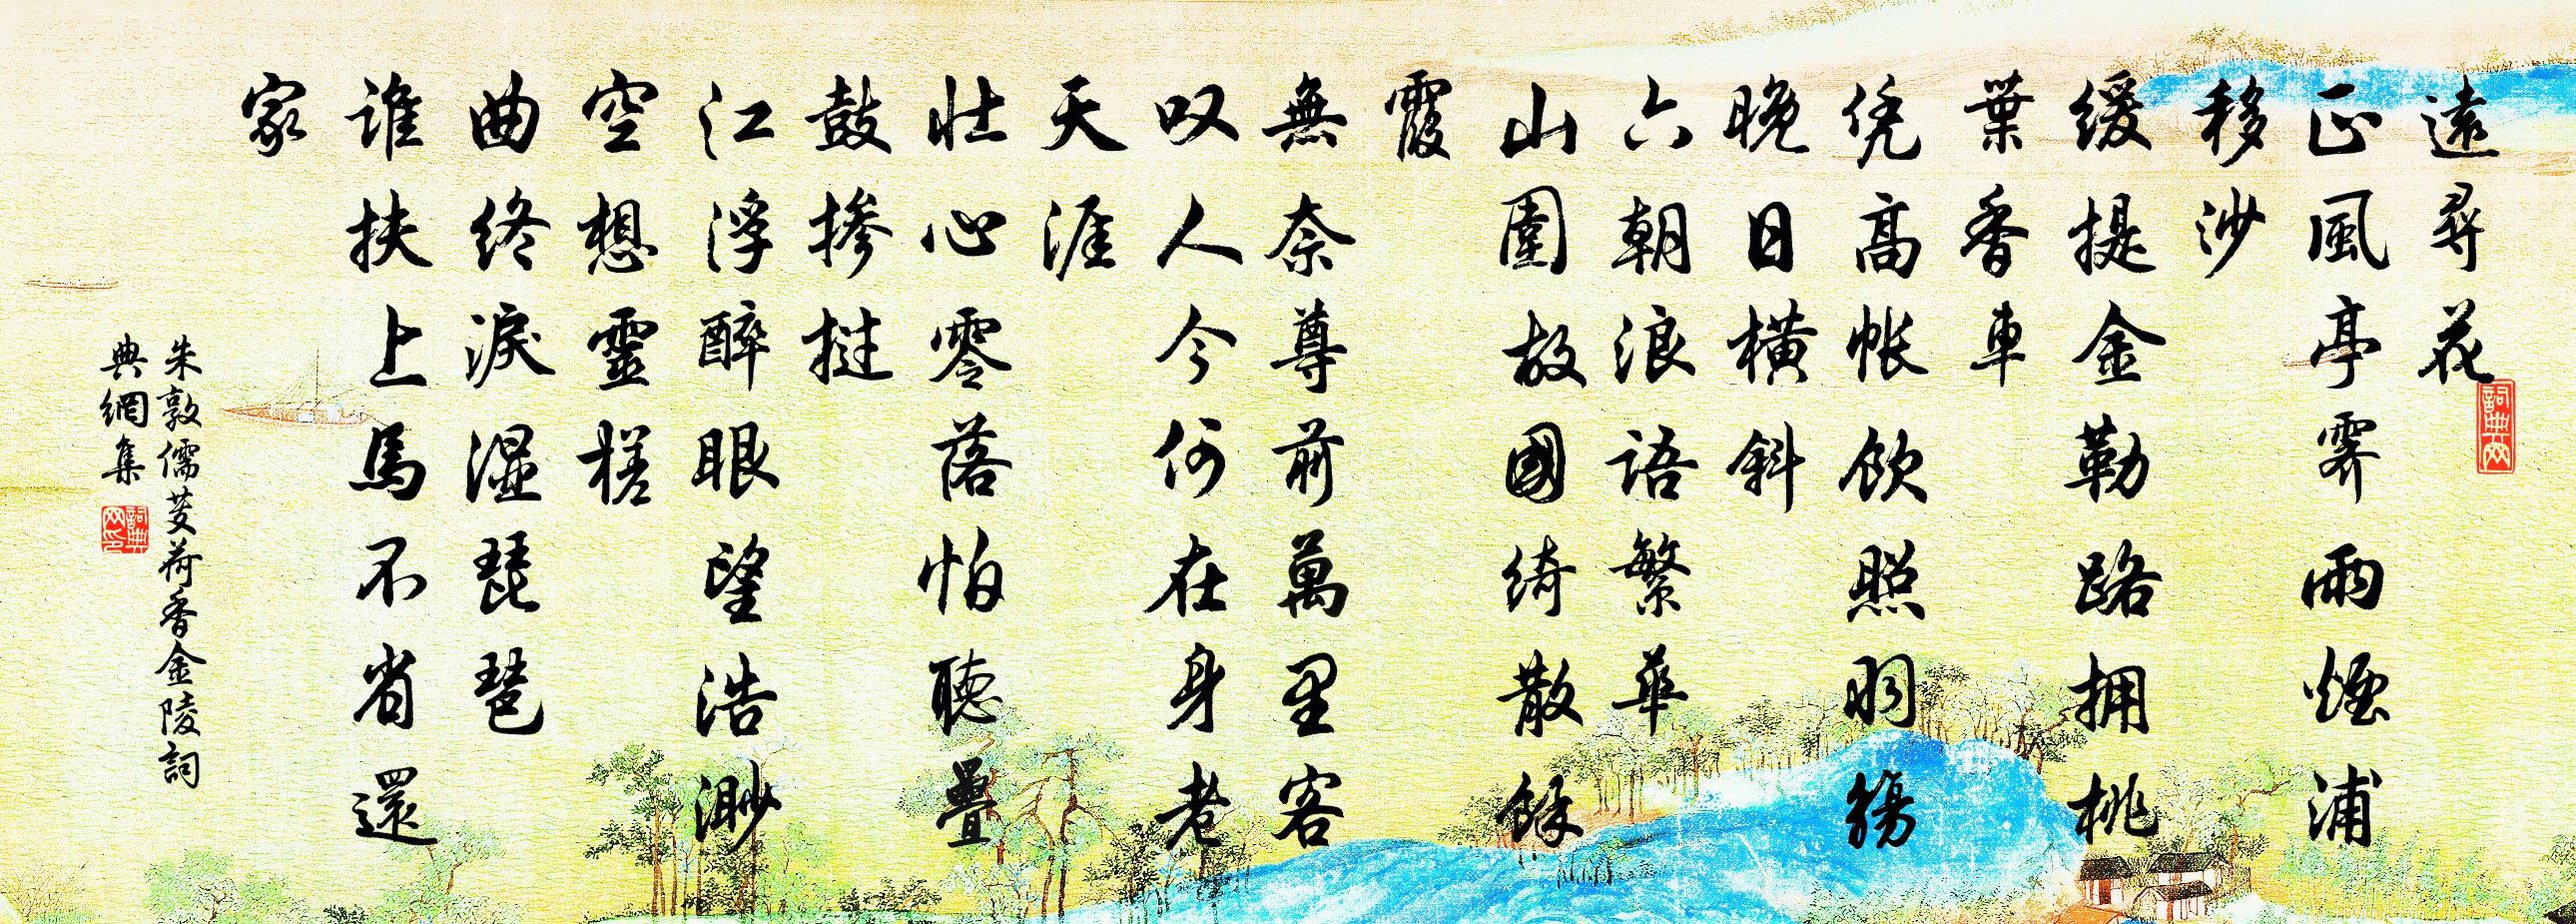 遠尋花
正風亭霽雨煙浦
移沙
緩提金勒路拥桃
葉香車
凭高帐飲照羽觴
晚日横斜
六朝浪語繁華
山圍故國綺散餘
霞
無奈尊前萬里客
叹人今何在身老
天涯
壮心零落怕聽疊
鼓掺挝
江浮醉眼望浩渺
空想靈槎
曲终淚湿琵琶
谁扶上馬不省還
家
詞典网
朱敦儒芰荷香金陵詞
典網集
詞典网印